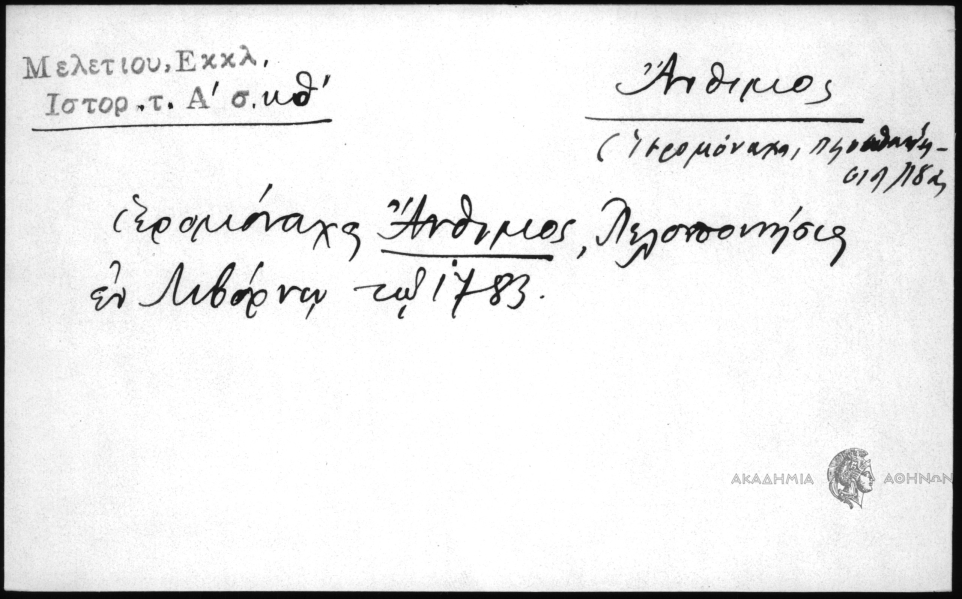 Μελετιου, Εκκλ.
Ιστορ. τ. Α' σ. κθ'
Ἄνθιμος
(ἱερομόναχος,
ἱερομόναχος Ἄνθιμος, Πελοποννήσιος
ἐν Λιβόρνῳ τῷ 1783.
ΑΚΑΔΗΜΙΑ ΑΘΗΝΩΝ